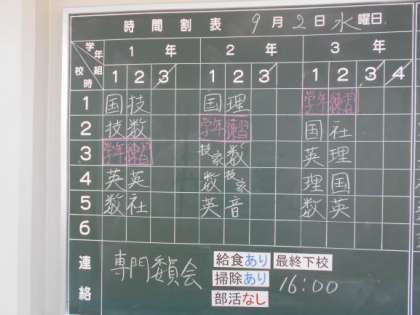 時間割表 9月2日水曜日
学年 1年 2年 3年
校時 組 1 2 3 1 2 3 1 2 3 4
1 国 技 国 理 学年練習
2 技 数 学年練習 国 社
3 学年練習 技家 数 英 理
4 英 英 数 技家 理 国
5 数 社 英 音 数 英
6
連絡 専門委員会 給食あり 最終下校
掃除あり 16:00
部活なし